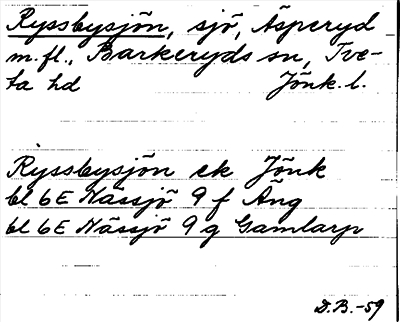 Ryssbysjön, sjö, Äsperyd
m.fl., Barkeryds sn, Tve-
ta hd Jönk. l.
Ryssbysjön ek Jönk
bl 6E Nässjö 9 f Äng
bl 6E Nässjö 9 g Gamlarp
D.B.-59